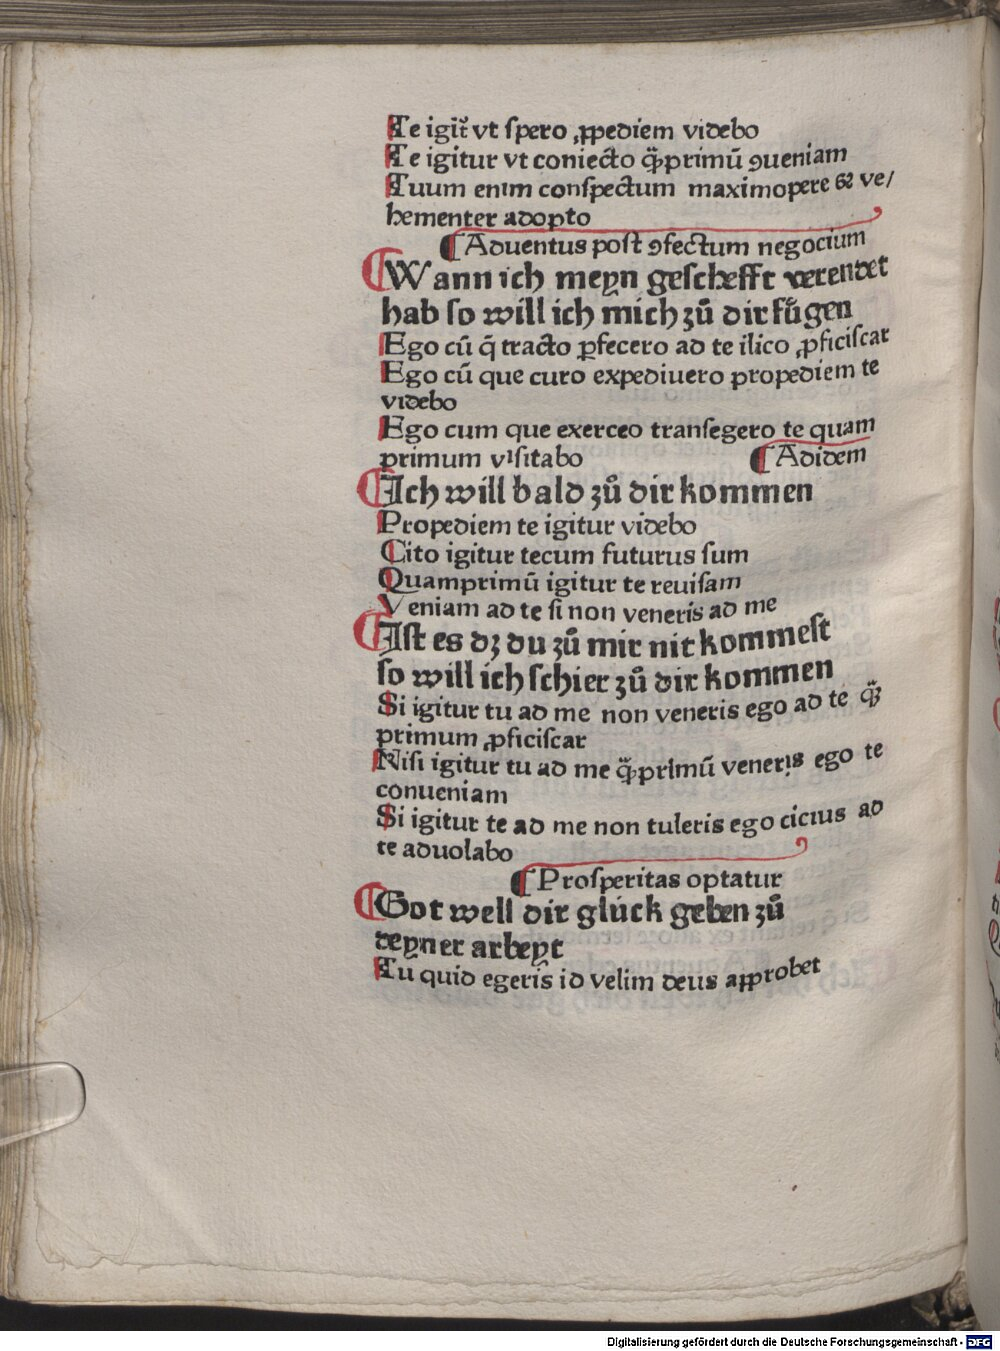 Te igit̃ vt spero ꝓpediem videbo
Te igitur vt coniecto q̃primũ ꝯueniam
Tuum enim conspectum maximopere & ve/
hementer adopto
¶ Aduentus post ꝯfectum negocium
¶ Wann ich meyn geschefft verendet
hab so will ich mich zů dir fügen
Ego cũ q̃ tracto ꝑfecero ad te ilico ꝓficiscar
Ego cũ que curo expediuero propediem te
videbo
Ego cum que exerceo transegero te quam
primum visitabo ¶ Adidem
¶ Ich will bald zů dir kommen
Propediem te igitur videbo
Cito igitur tecum futurus sum
Quamprimũ igitur te reuisam
Veniam ad te si non veneris ad me
¶ Ist es dz du zů mir nit kommest
so will ich schier zů dir kommen
Si igitur tu ad me non veneris ego ad te q̃
primum ꝓficiscar
Nisi igitur tu ad me q̃primũ veneris ego te
conueniam
Si igitur te ad me non tuleris ego cicius ad
te aduolabo
¶ Prosperitas optatur
¶ Got well dir glück geben zů
deyner arbeyt
Tu quid egeris id velim deus approbet
Digitalisierung gefördert durch die Deutsche Forschungsgemeinschaft - DFG